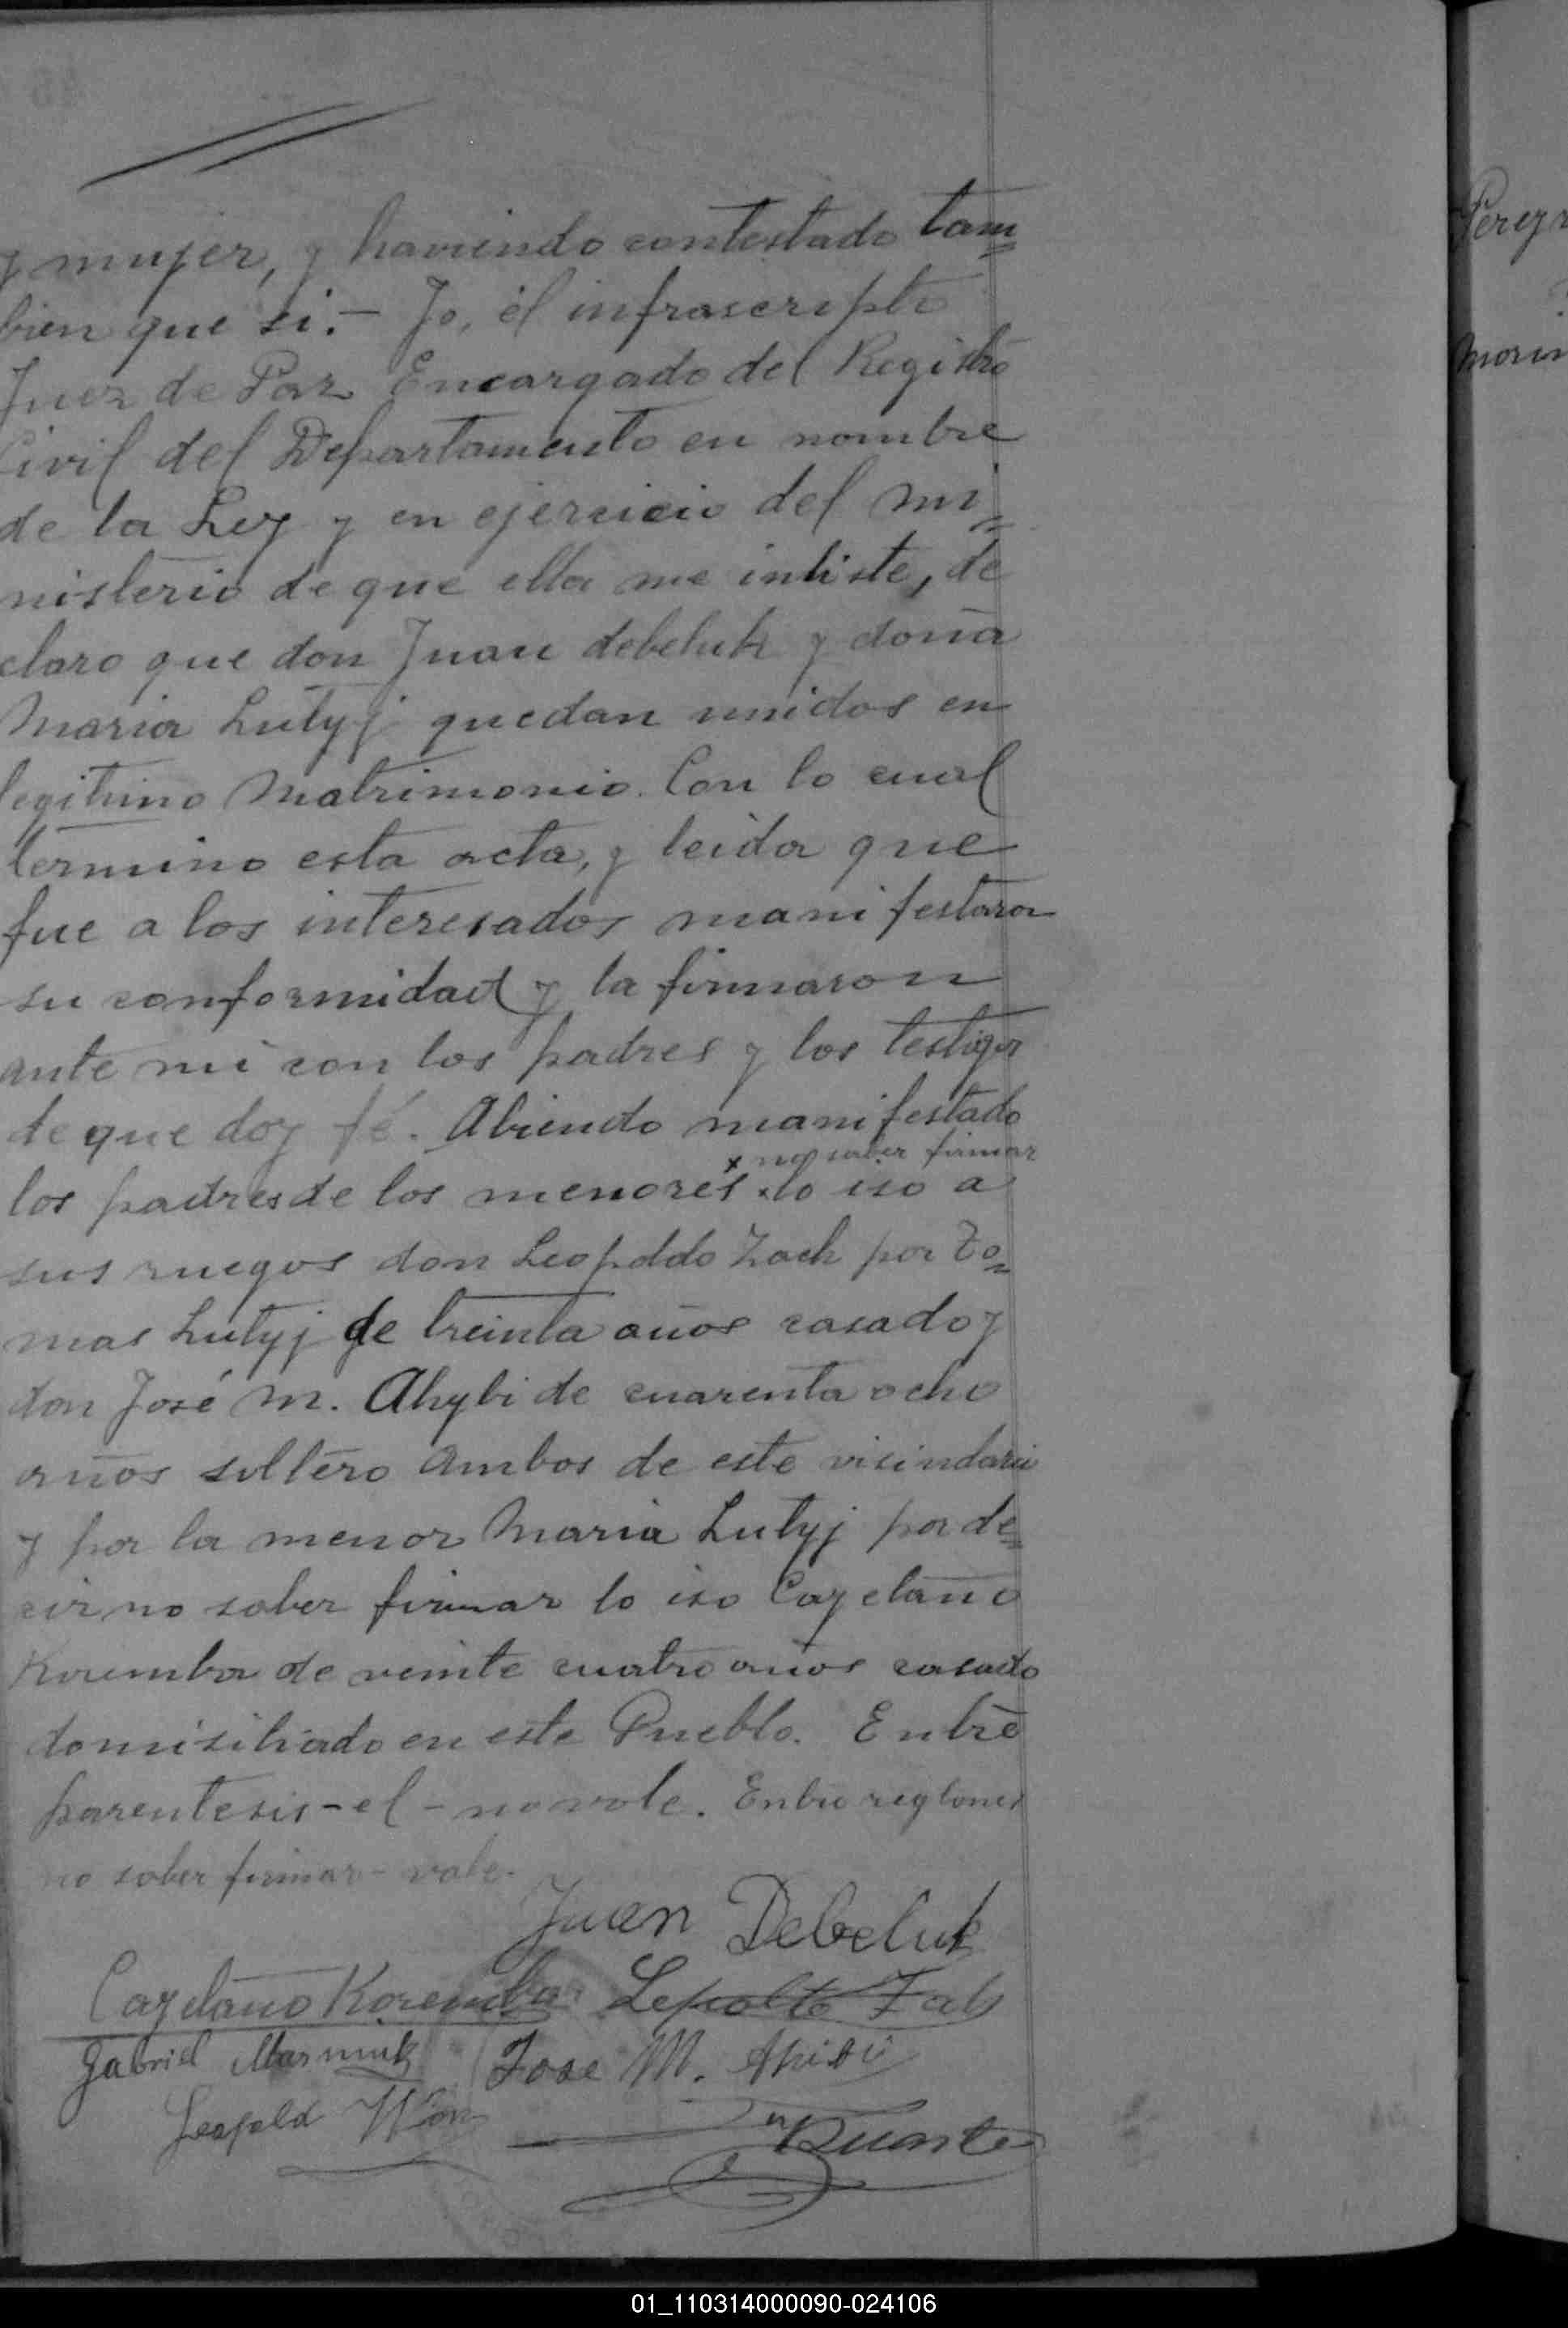 y mujer, y haviendo contestado tam=
bien que si.- Jo, el infrascripto
Juez de Paz Encargado del Registro
Civil del Departamento en nombre
de la Ley y en ejercicio del mi=
nisterio de que ella me inviste, de
claro que don Juan debeluk y doña
Maria Lutyj quedan unidos en
legitimo Matrimonio. Con lo cual
termino esta acta, y leida que
fue a los interesados manifestaron
su conformidad y la firmaron
ante mi con los padres y los testigos
de que doy fé. Abiendo manifestado
x no saber firmar
los padres de los menores x lo iso a
sus ruegos don Leopoldo Zach por To=
mas Lutyj de treinta años casado y
don José M. Ahybi de cuarenta ocho
años soltero ambos de este visindario
y por la menor Maria Lutyj por de=
cir no saber firmar lo iso Cayetano
Koremba de veinte cuatro años casado
domisiliado en este Pueblo. Entre
parentesis - el - no vale. Entre reglones
no saber firmar - vale.
Juan Debeluk
Cayetano Koremba
Gabriel Jose M.
Leopold
Perez